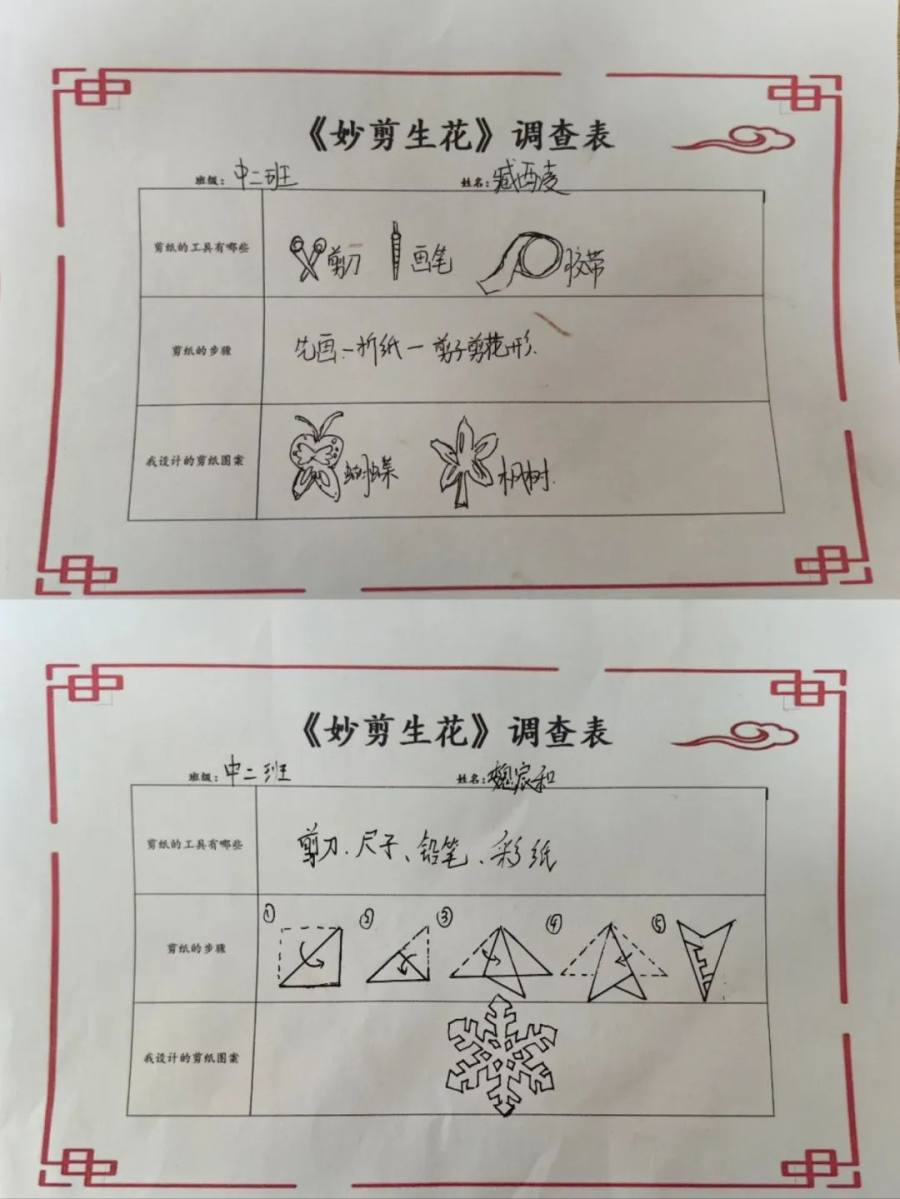 《妙剪生花》调查表
班级：中二班 姓名：臧西麦
剪纸的工具有哪些 剪刀 画笔 胶带
剪纸的步骤 先画一折纸一剪子剪花形.
我设计的剪纸图案 蝴蝶 枫树.
《妙剪生花》调查表
班级：中二班 姓名：魏宸和
剪纸的工具有哪些 剪刀、尺子、铅笔、彩纸
剪纸的步骤 ① ② ③ ④ ⑤
我设计的剪纸图案